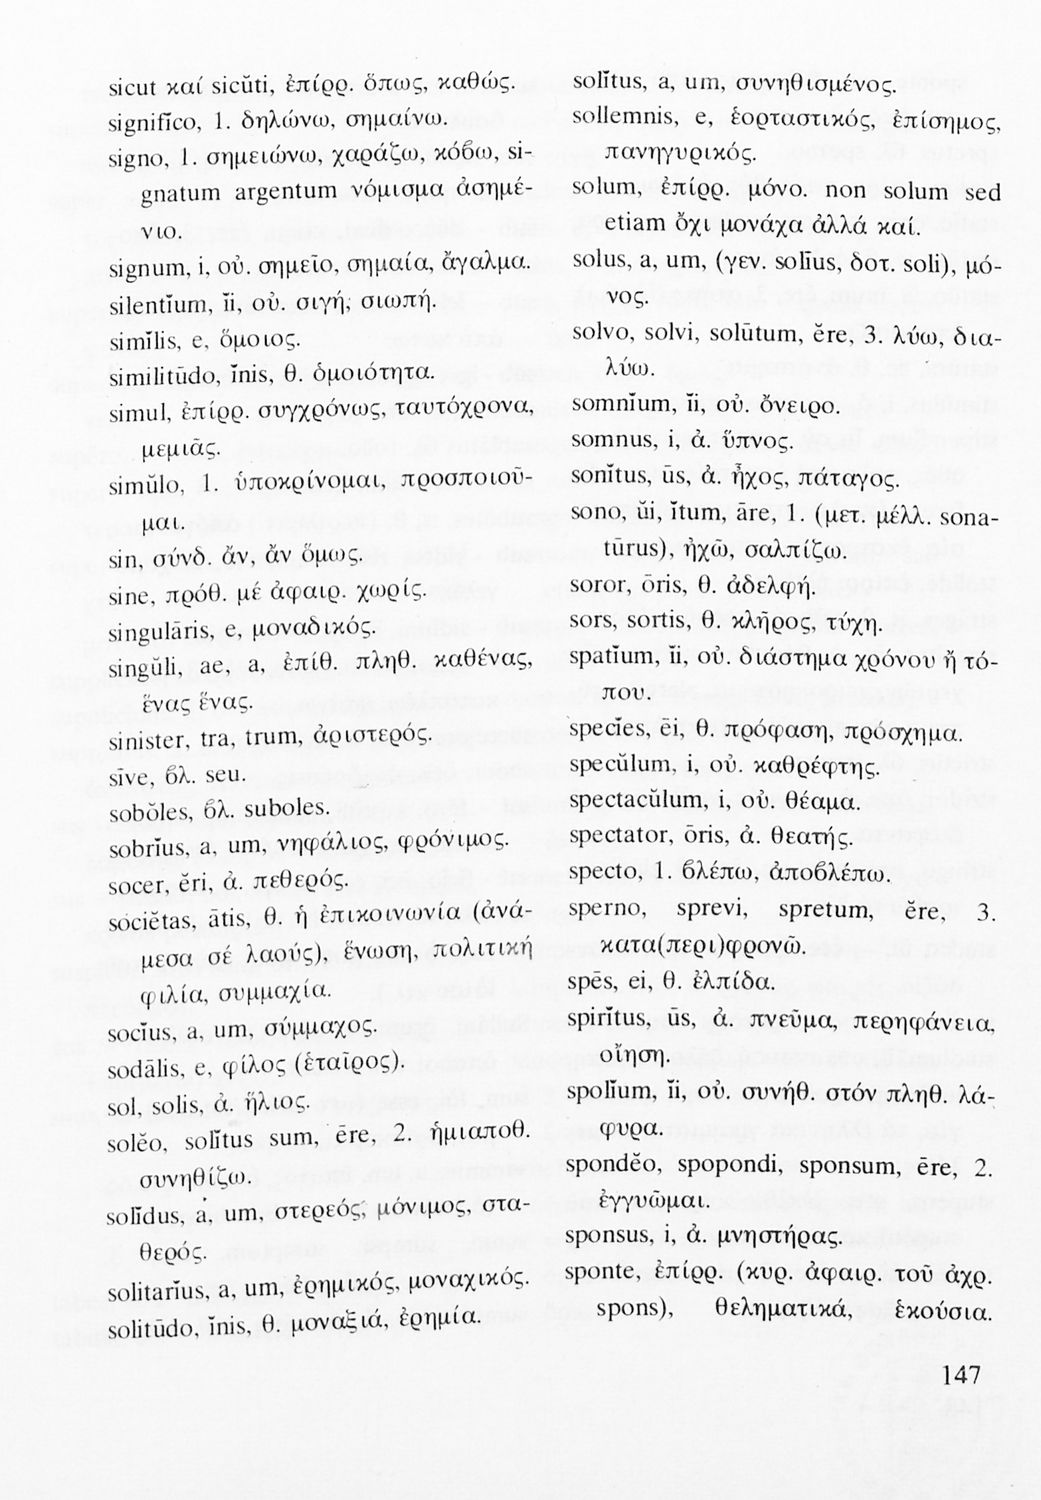 sicut καί sicŭti, ἐπίρρ. ὅπως, καθώς.
signifĭco, 1. δηλώνω, σημαίνω.
signo, 1. σημειώνω, χαράζω, κόβω, si-
gnatum argentum νόμισμα ἀσημέ-
νιο.
signum, i, οὐ. σημεῖο, σημαία, ἄγαλμα.
silentĭum, ĭi, οὐ. σιγή, σιωπή.
simĭlis, e, ὅμοιος.
similitūdo, ĭnis, θ. ὁμοιότητα.
simul, ἐπίρρ. συγχρόνως, ταυτόχρονα,
μεμιᾶς.
simŭlo, 1. ὑποκρίνομαι, προσποιοῦ-
μαι.
sin, σύνδ. ἄν, ἄν ὅμως.
sine, πρόθ. μέ ἀφαιρ. χωρίς.
singulāris, e, μοναδικός.
singŭli, ae, a, ἐπίθ. πληθ. καθένας,
ἕνας ἕνας.
sinister, tra, trum, ἀριστερός.
sīve, βλ. seu.
sobŏles, βλ. suboles.
sobrĭus, a, um, νηφάλιος, φρόνιμος.
socer, ĕri, ἀ. πεθερός.
sociĕtas, ātis, θ. ἡ ἐπικοινωνία (ἀνά-
μεσα σέ λαούς), ἕνωση, πολιτική
φιλία, συμμαχία.
socĭus, a, um, σύμμαχος.
sodālis, e, φίλος (ἑταῖρος).
sol, solis, ἀ. ἥλιος.
solĕo, solĭtus sum, ēre, 2. ἡμιαποθ.
συνηθίζω.
solĭdus, a, um, στερεός, μόνιμος, στα-
θερός.
solitarĭus, a, um, ἐρημικός, μοναχικός.
solitūdo, ĭnis, θ. μοναξιά, ἐρημία.
solĭtus, a, um, συνηθισμένος.
sollemnis, e, ἑορταστικός, ἐπίσημος,
πανηγυρικός.
solum, ἐπίρρ. μόνο. non solum sed
etiam ὄχι μονάχα ἀλλά καί.
solus, a, um, (γεν. solĭus, δοτ. soli), μό-
νος.
solvo, solvi, solūtum, ĕre, 3. λύω, δια-
λύω.
somnĭum, ĭi, οὐ. ὄνειρο.
somnus, i, ἀ. ὕπνος.
sonĭtus, ūs, ἀ. ἦχος, πάταγος.
sono, ŭi, ĭtum, āre, 1. (μετ. μέλλ. sona-
tūrus), ἠχῶ, σαλπίζω.
soror, ōris, θ. ἀδελφή.
sors, sortis, θ. κλῆρος, τύχη.
spatĭum, ĭi, οὐ. διάστημα χρόνου ἤ τό-
που.
specĭes, ēi, θ. πρόφαση, πρόσχημα.
specŭlum, i, οὐ. καθρέφτης.
spectacŭlum, i, οὐ. θέαμα.
spectator, ōris, ἀ. θεατής.
specto, 1. βλέπω, ἀποβλέπω.
sperno, sprevi, spretum, ĕre, 3.
κατα(περι)φρονῶ.
spēs, ei, θ. ἐλπίδα.
spirĭtus, ūs, ἀ. πνεῦμα, περηφάνεια,
οἴηση.
spolĭum, ĭi, οὐ. συνήθ. στόν πληθ. λά-
φυρα.
spondĕo, spopondi, sponsum, ēre, 2.
ἐγγυῶμαι.
sponsus, i, ἀ. μνηστήρας.
sponte, ἐπίρρ. (κυρ. ἀφαιρ. τοῦ ἀχρ.
spons), θεληματικά, ἑκούσια.
147